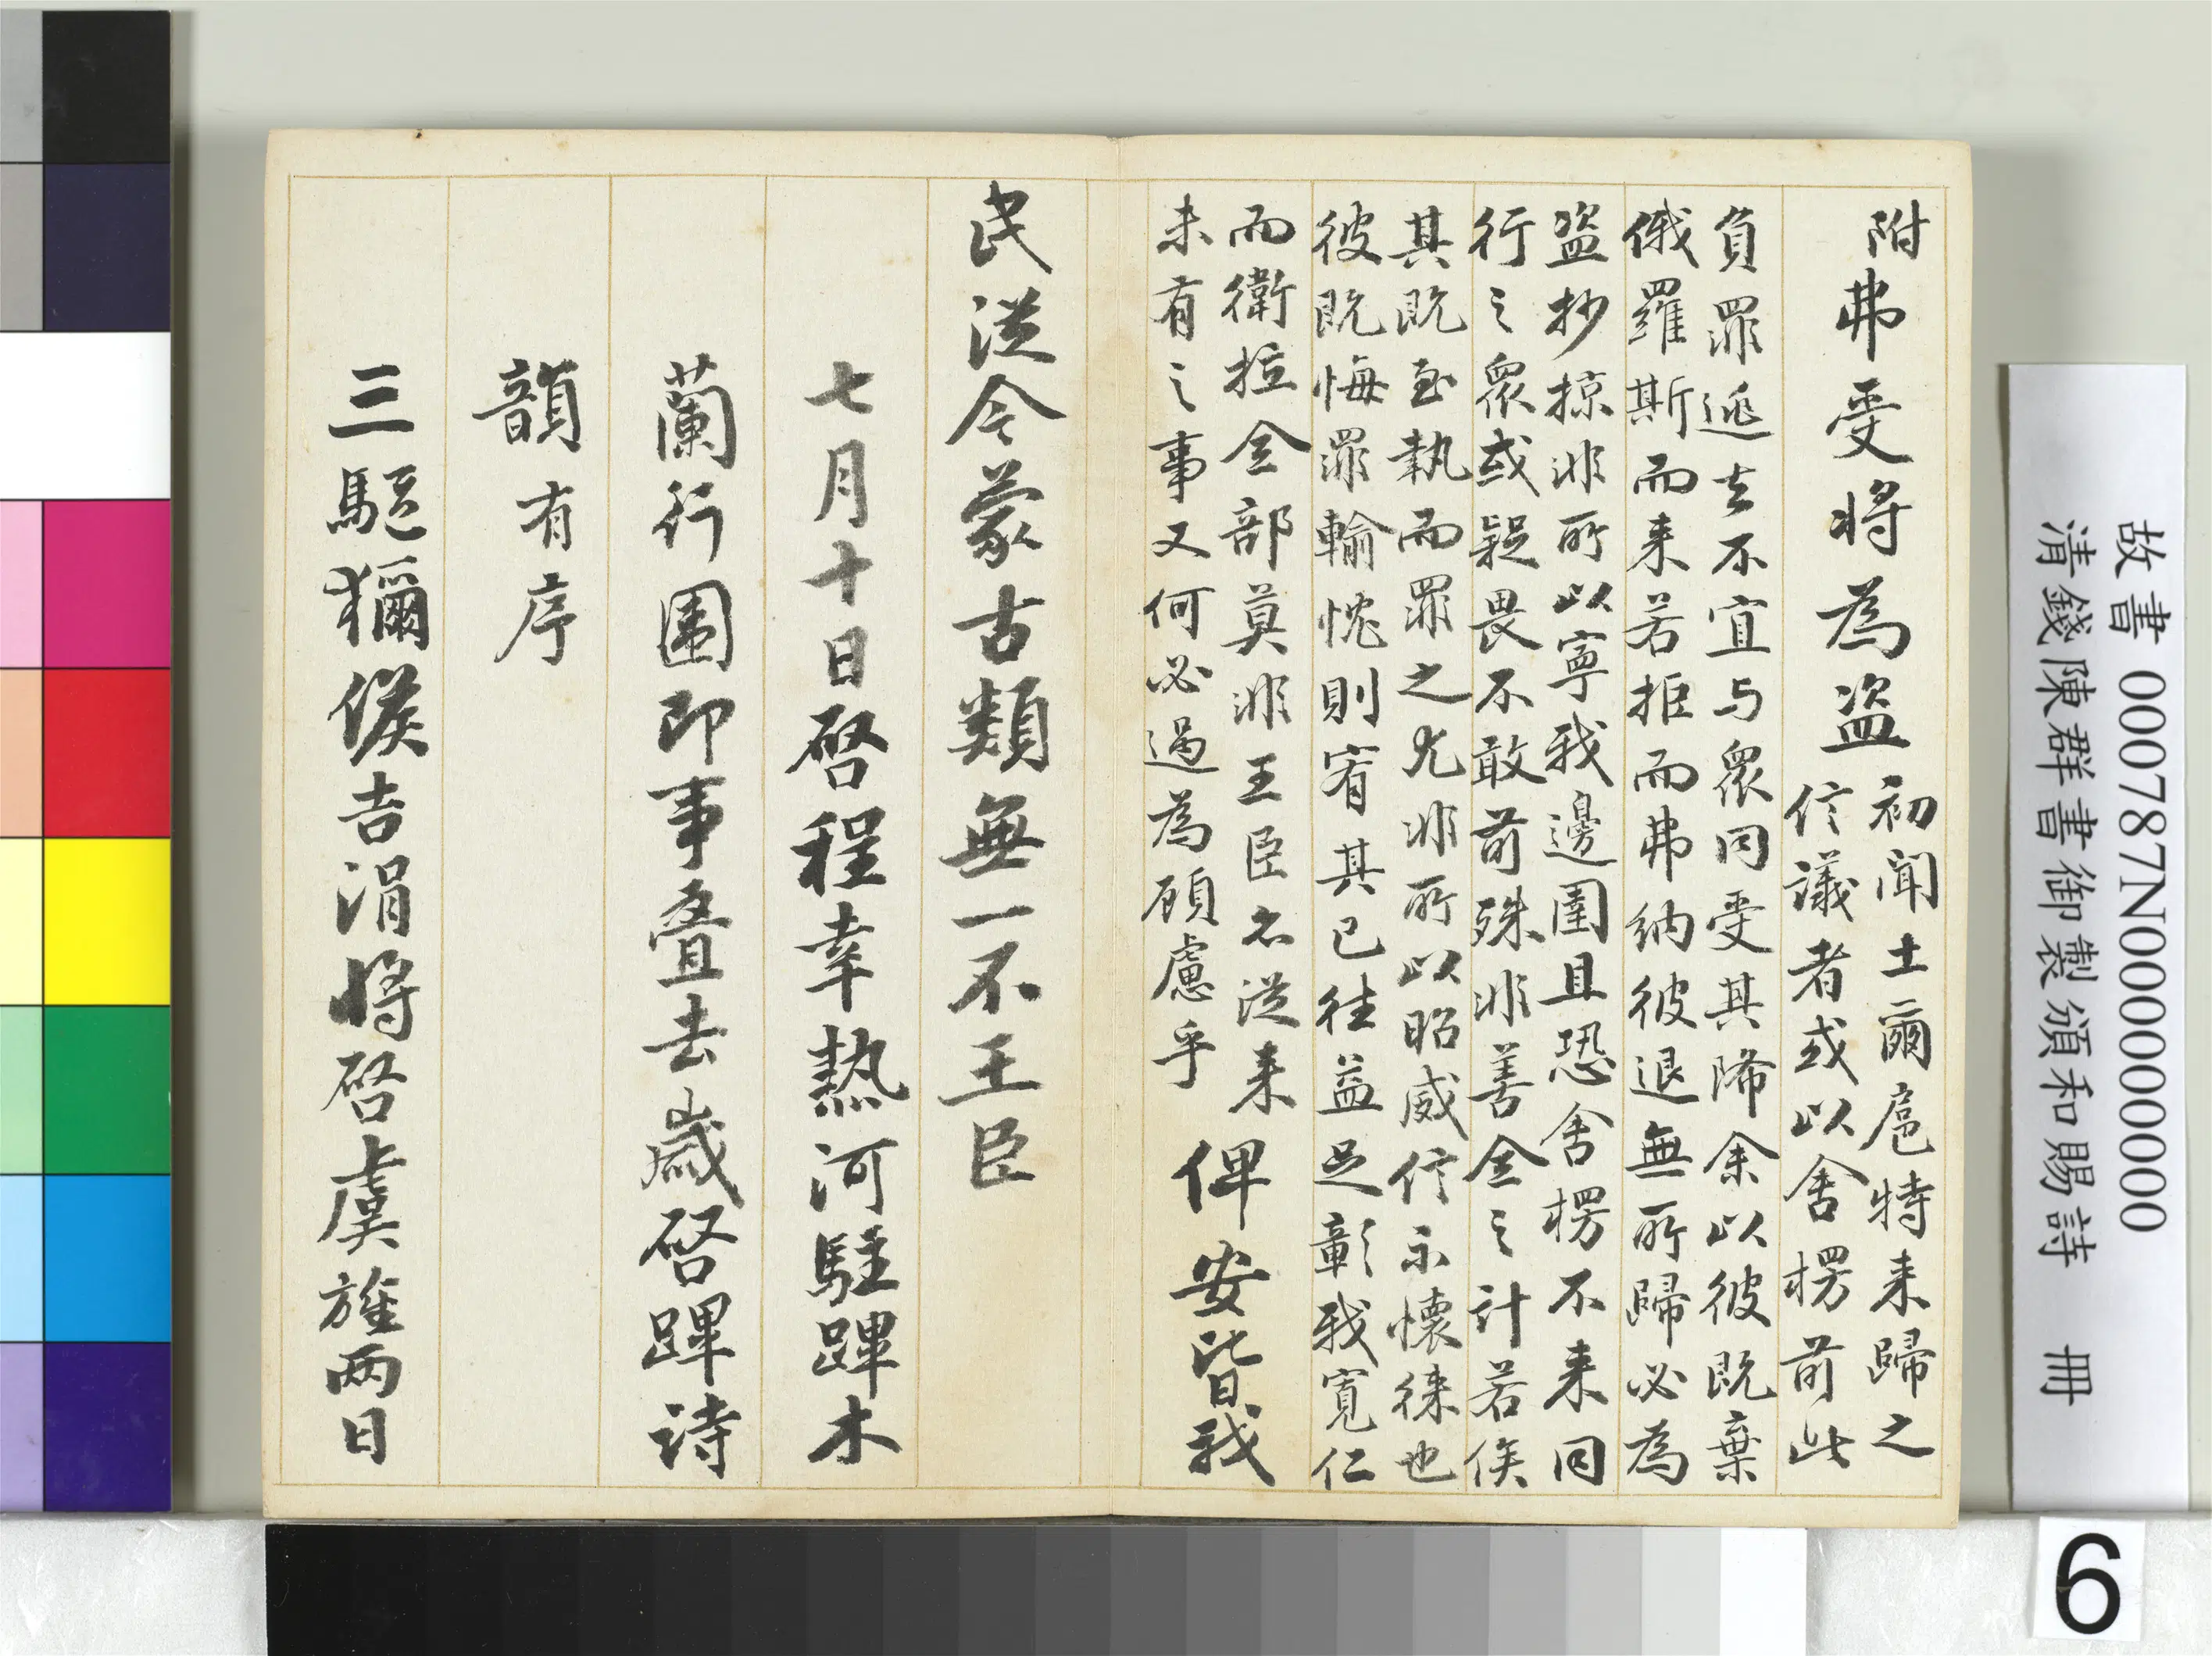 附弗受將為盜
初聞土爾扈特来歸之
信議者或以舍楞前此
負罪逃去不宜与眾同受其降余以彼既棄
俄羅斯而来若拒而弗納彼退無所歸必為
盜抄掠非所以寧我邊圉且恐舍楞不来同
行之眾或疑畏不敢前殊非善全之計若俟
其既至執而罪之尤非所以昭威信示懷徠也
彼既悔罪輸忱則宥其已往益足彰我寬仁
而衛拉全部莫非王臣從来
未有之事又何必過為顧慮乎
俾安皆我
民從今蒙古類無一不王臣
七月十日啓程幸熱河駐蹕木
蘭行圍即事叠去歲啓蹕詩
韻有序
三驅獮候吉涓將啓虞旌兩日
故書 000787N000000000
清錢陳群書御製頒和賜詩 冊
6